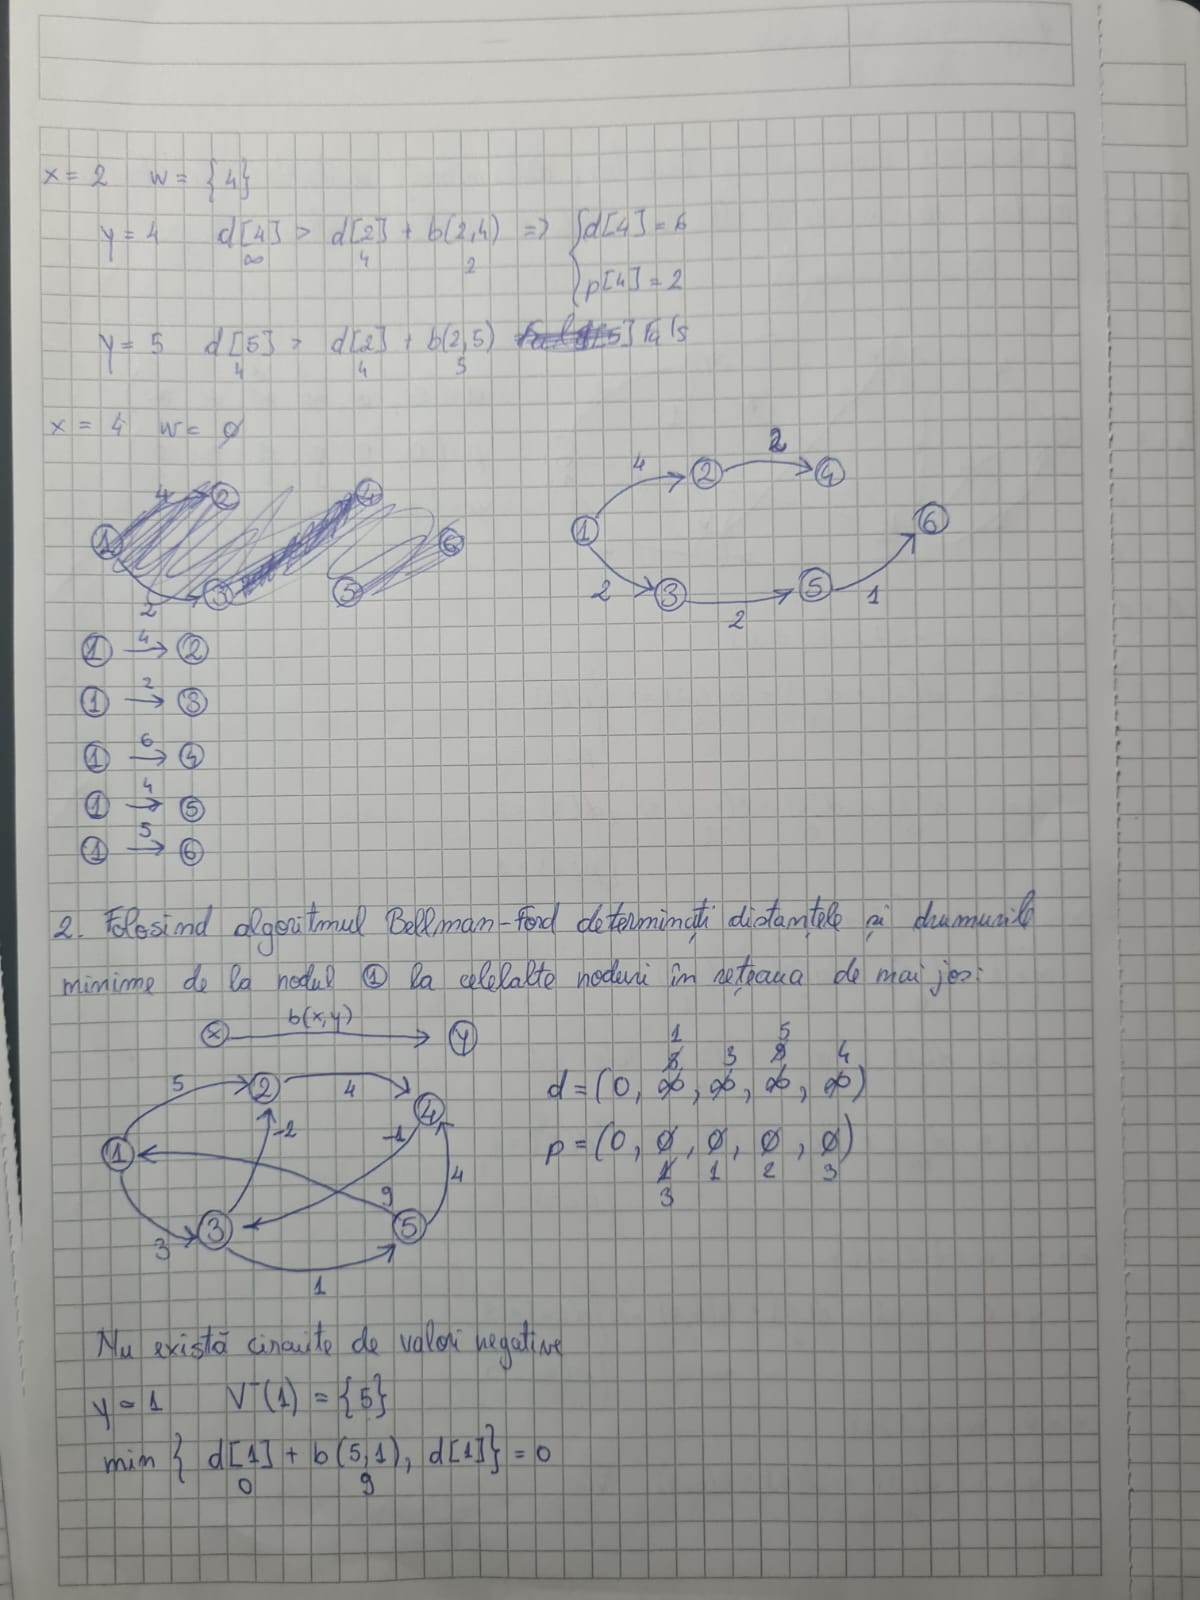 x = 2 w = {4}
y = 4 d[4] > d[2] + b(2,4) => { d[4] = 6
∞ 4 2
p[4] = 2
y = 5 d[5] > d[2] + b(2,5) Fals
4 4 5
x = 4 w = ∅
4 2 1 3 2 4 5 6
1 4 2 2 4
2 3 2 5 1 6
1 4→ 2
1 2→ 3
1 6→ 4
1 4→ 5
1 5→ 6
2. Folosind algoritmul Bellman-Ford determinați distanțele și drumurile
minime de la nodul 1 la celelalte noduri în rețeaua de mai jos:
x b(x,y)→ y
1 5
8 3 9 4
d = (0, ∞, ∞, ∞, ∞)
p = (0, ∅, ∅, ∅, ∅)
1 1 2 3
3
5 2 4 4
1 -2 -1
9 4
3 3 5
1
Nu există circuite de valori negative
y = 1 V⁻(1) = {5}
min { d[1] + b(5,1), d[1]} = 0
0 9